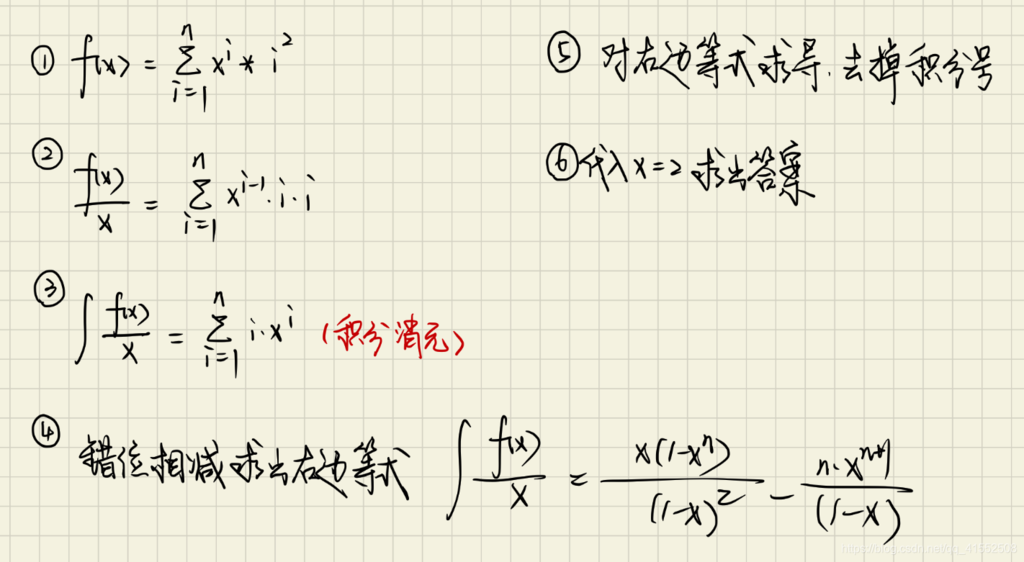 ① f(x) = \sum_{i=1}^{n} x^i * i^2
② \frac{f(x)}{x} = \sum_{i=1}^{n} x^{i-1} · i · i
③ \int \frac{f(x)}{x} = \sum_{i=1}^{n} i · x^i (积分消元)
④ 错位相减求出右边等式 \int \frac{f(x)}{x} = \frac{x(1-x^n)}{(1-x)^2} - \frac{n·x^{n+1}}{(1-x)}
⑤ 对右边等式求导, 去掉积分号
⑥ 代入 x=2 求出答案
https://blog.csdn.net/qq_41552508